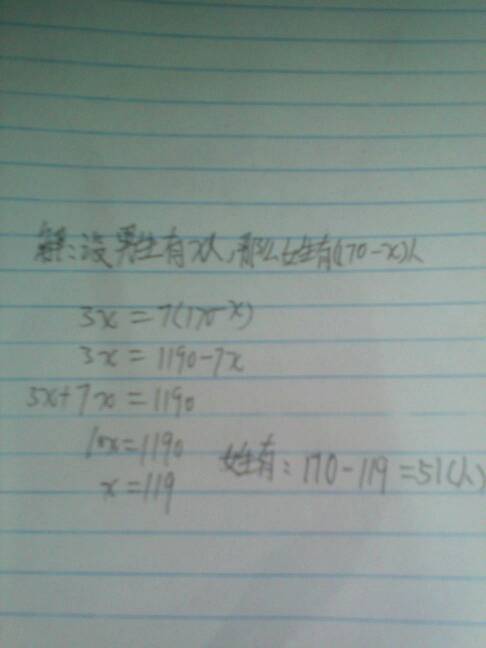 解:设男生有x人,那么女生有(170-x)人
3x=7(170-x)
3x=1190-7x
3x+7x=1190
10x=1190
x=119
女生有:170-119=51(人)